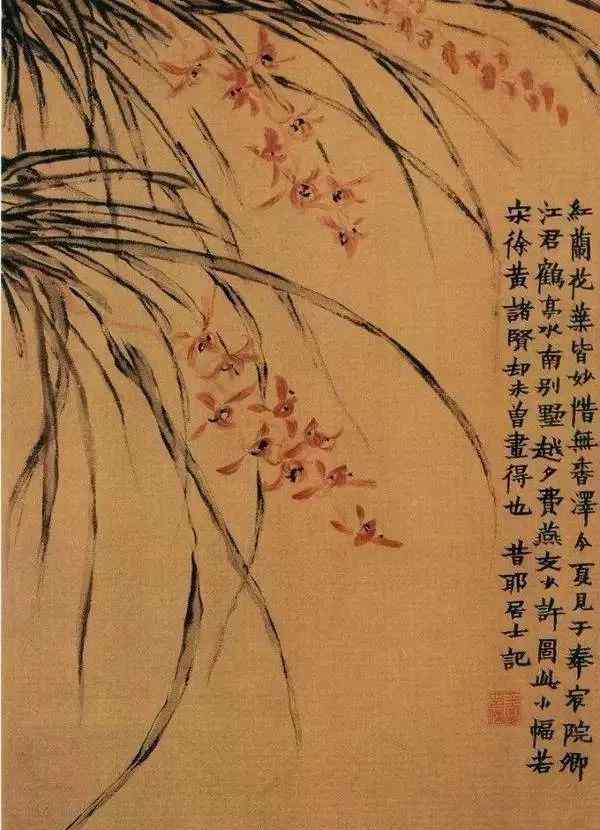 紅蘭花葉皆妙惜無香澤今夏見于奉宸院卿
江君鶴亭水南別墅越夕費燕支少許圖此小幅若
宋徐黃諸賢却未曾畫得也　昔耶居士記